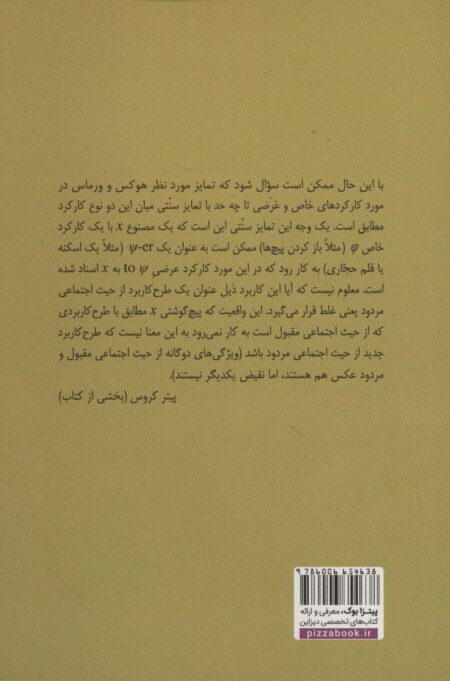 با این حال ممکن است سؤال شود که تمایز مورد نظر هوکس و ورماس در
مورد کارکردهای خاص و عَرَضی تا چه حد با تمایز سنّتی میان این دو نوع کارکرد
مطابق است. یک وجه این تمایز سنّتی این است که یک مصنوع x با یک کارکرد
خاص φ (مثلاً باز کردن پیچ‌ها) ممکن است به عنوان یک ψ-er (مثلاً یک اسکنه
یا قلم حجّاری) به کار رود که در این مورد کارکرد عرضی to ψ به x اسناد شده
است. معلوم نیست که آیا این کاربرد ذیل عنوان یک طرح‌کاربرد از حیث اجتماعی
مردود یعنی غلط قرار می‌گیرد. این واقعیت که پیچ‌گوشتی x مطابق با طرح‌کاربردی
که از حیث اجتماعی مقبول است به کار نمی‌رود به این معنا نیست که طرح‌کاربرد
جدید از حیث اجتماعی مردود باشد (ویژگی‌های دوگانه از حیث اجتماعی مقبول و
مردود عکس هم هستند، اما نقیض یکدیگر نیستند).
پیتر کروس (بخشی از کتاب)
9 786006 654638
پیتزا بوک، معرفی و ارائه
کتاب‌های تخصصی دیزاین
pizzabook.ir